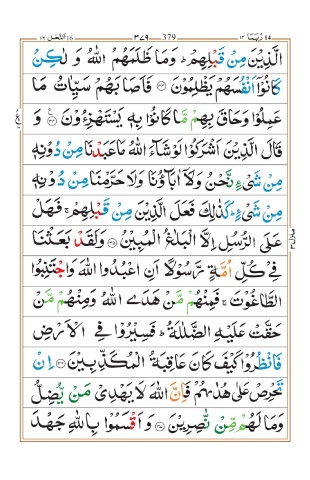 النحل ١٦ 16 ٣٧٩ 379 ربما ١٤
الَّذِیْنَ مِنْ قَبْلِهِمْ ؕ وَمَا ظَلَمَهُمُ اللّٰهُ وَ لٰـكِنْ
كَانُوْۤا اَنْفُسَهُمْ یَظْلِمُوْنَ ﴿۳۳﴾ فَاَصَابَهُمْ سَیِّاٰتُ مَا
عَمِلُوْا وَحَاقَ بِهِمْ مَّا كَانُوْا بِهٖ یَسْتَهْزِءُوْنَ ﴿۳۴﴾ وَ
قَالَ الَّذِیْنَ اَشْرَكُوْا لَوْ شَآءَ اللّٰهُ مَا عَبَدْنَا مِنْ دُوْنِهٖ
مِنْ شَیْءٍ نَّحْنُ وَلَاۤ اٰبَآؤُنَا وَلَا حَرَّمْنَا مِنْ دُوْنِهٖ
مِنْ شَیْءٍ ؕ كَذٰلِكَ فَعَلَ الَّذِیْنَ مِنْ قَبْلِهِمْ ۚ فَهَلْ
عَلَی الرُّسُلِ اِلَّا الْبَلٰغُ الْمُبِیْنُ ﴿۳۵﴾ وَلَقَدْ بَعَثْنَا
فِیْ كُلِّ اُمَّةٍ رَّسُوْلًا اَنِ اعْبُدُوا اللّٰهَ وَاجْتَنِبُوا
الطَّاغُوْتَ ۚ فَمِنْهُمْ مَّنْ هَدَی اللّٰهُ وَمِنْهُمْ مَّنْ
حَقَّتْ عَلَیْهِ الضَّلٰلَةُ ؕ فَسِیْرُوْا فِی الْاَرْضِ
فَانْظُرُوْا كَیْفَ كَانَ عَاقِبَةُ الْمُكَذِّبِیْنَ ﴿۳۶﴾ اِنْ
تَحْرِصْ عَلٰی هُدٰىهُمْ فَاِنَّ اللّٰهَ لَا یَهْدِیْ مَنْ یُّضِلُّ
وَمَا لَهُمْ مِّنْ نّٰصِرِیْنَ ﴿۳۷﴾ وَ اَقْسَمُوْا بِاللّٰهِ جَهْدَ